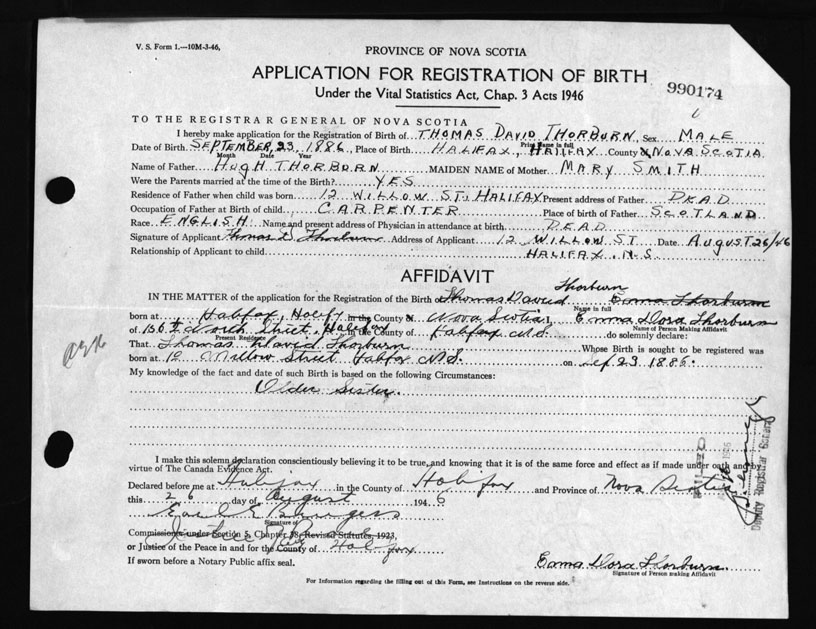 V. S. Form 1.—10M-3-46,
PROVINCE OF NOVA SCOTIA
APPLICATION FOR REGISTRATION OF BIRTH
Under the Vital Statistics Act, Chap. 3 Acts 1946
990174
TO THE REGISTRAR GENERAL OF NOVA SCOTIA
I hereby make application for the Registration of Birth of THOMAS DAVID THORBURN, Sex MALE
Print Name in full
Date of Birth SEPTEMBER, 23, 1886, Place of Birth HALIFAX, HALIFAX County NOVA SCOTIA
Month Date Year
Name of Father HUGH THORBURN MAIDEN NAME of Mother MARY SMITH
Were the Parents married at the time of the Birth? YES
Residence of Father when child was born 12 WILLOW ST. HALIFAX Present address of Father DEAD
Occupation of Father at Birth of child CARPENTER Place of birth of Father SCOTLAND
Race ENGLISH Name and present address of Physician in attendance at birth DEAD
Signature of Applicant Thomas D Thorburn Address of Applicant 12 WILLOW ST Date AUGUST 26/46
Relationship of Applicant to child HALIFAX, N.S.
AFFIDAVIT
Thorburn
IN THE MATTER of the application for the Registration of the Birth of Thomas David Emma Thorburn
Name in full
born at Halifax, in the County of Nova Scotia I, Emma Dora Thorburn
Name of Person Making Affidavit
of 156 North Street, Halifax in the County of Halifax N.S. do solemnly declare:
Present Residence
That Thomas David Thorburn Whose Birth is sought to be registered was
born at 12 Willow Street Halifax N.S. on Sep 23 1886.
My knowledge of the fact and date of such Birth is based on the following Circumstances:
Older Sister.
I make this solemn declaration conscientiously believing it to be true, and knowing that it is of the same force and effect as if made under oath and by
virtue of The Canada Evidence Act.
Declared before me at Halifax in the County of Halifax and Province of Nova Scotia
this 26 day of August 1946
Signature of
Commissioner under Section 5, Chapter 38, Revised Statutes, 1923,
or Justice of the Peace in and for the County of Halifax
If sworn before a Notary Public affix seal.
Emma Dora Thorburn.
Signature of Person making Affidavit
For Information regarding the filling out of this Form, see Instructions on the reverse side.
Deputy Registrar General